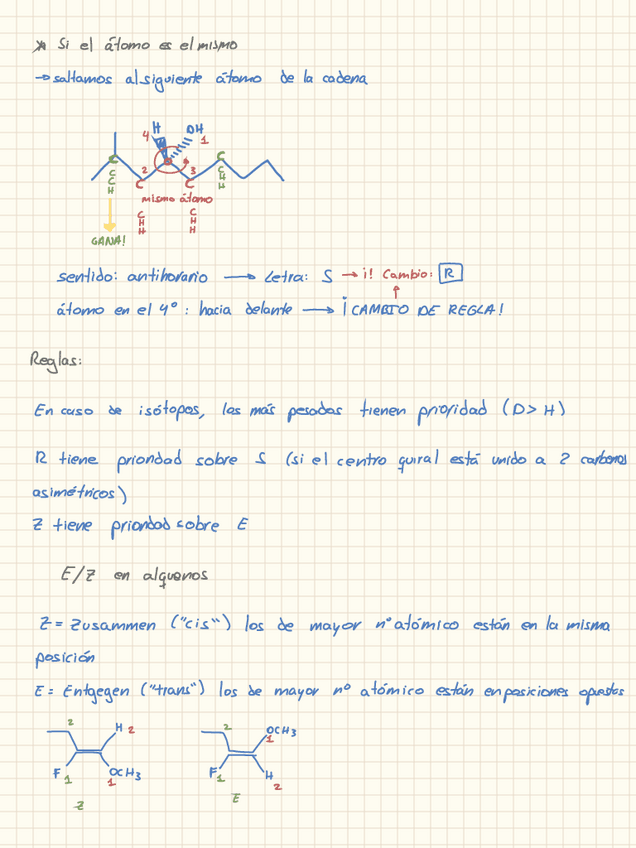 * Si el átomo es el mismo
→ saltamos al siguiente átomo de la cadena
H OH
4 1
C C
2 3
C C
C C
C H
H H
mismo átomo
C C
H H
H H
GANA!
sentido: antihorario → Letra: S → ¡! Cambio: R
átomo en el 4º: hacia delante → ¡CAMBIO DE REGLA!
Reglas:
En caso de isótopos, los más pesados tienen prioridad (D > H)
R tiene prioridad sobre S (si el centro quiral está unido a 2 carbonos
asimétricos)
Z tiene prioridad sobre E
E/Z en alquenos
Z = Zusammen ("cis") los de mayor nº atómico están en la misma
posición
E = Entgegen ("trans") los de mayor nº atómico están en posiciones opuestas
2 H 2 2 OCH3
1
F 1 OCH3 F 1 H
1 2
Z E